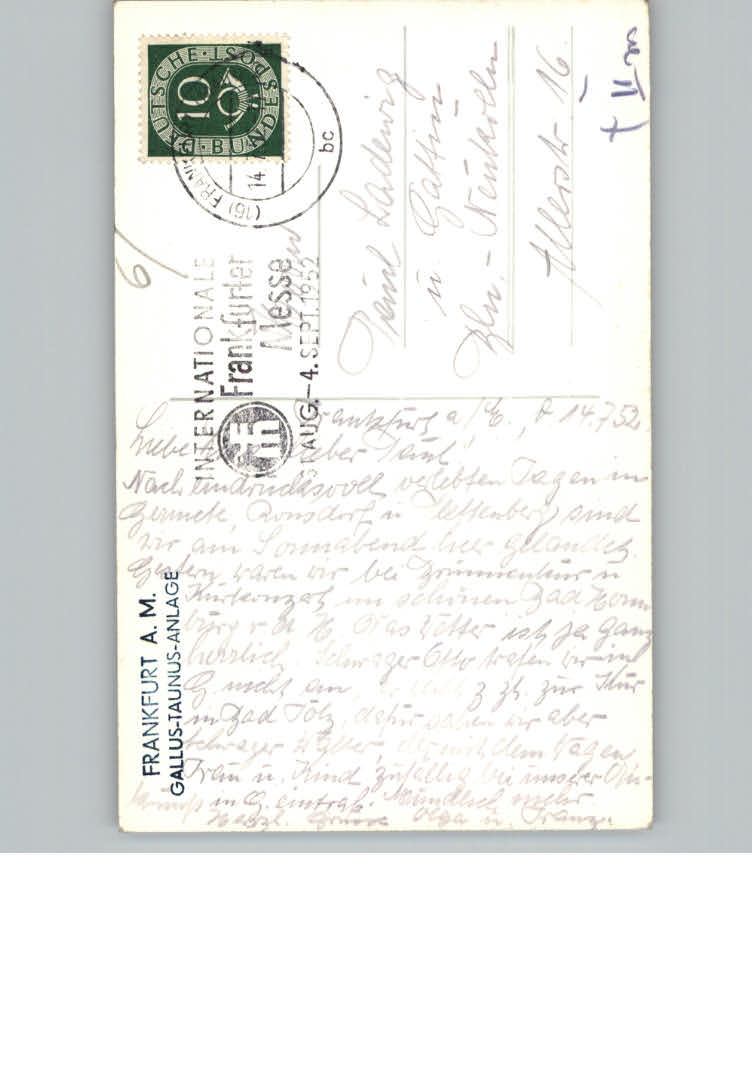 DEUTSCHE BUNDESPOST
10
(16) FRANKF
14.
bc
INTERNATIONALE
Frankfurter
Messe
AUG.–4. SEPT. 1952
Paul Ladewig
u. Gattin
Bln. - Neukölln
Allerstr. 16
II
6/
Frankfurt a/ , d 14.7.52.
Liebe lieber Paul!
Nach eindrucksvoll verlebten Tagen in
Ronsdorf u Plettenberg sind
wir am Sonnabend hier gelandet.
Gestern waren wir bei Brunnenkur u
Kurkonzert im schönen Bad Hom
burg v d H. Das Wetter ist ja ganz
herrlich. Schwager Otto trafen wir in
G nicht an, er z. Zt. zur Kur
in Bad Tölz, dafür sahen wir aber
Schwager , der mit dem Wagen
Frau u. Kind zufällig bei unserer An-
kunft in G. eintraf. Mündlich mehr
Herzl. Grüsse Olga u. Franz
FRANKFURT A. M.
GALLUS-TAUNUS-ANLAGE